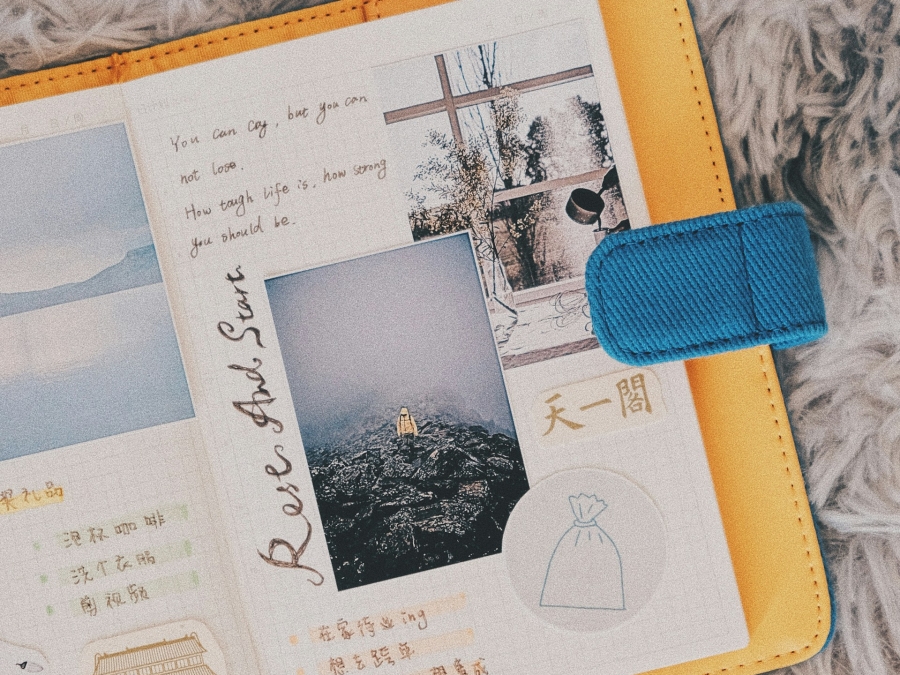 礼品
泡杯咖啡
洗个衣服
剪视频
You can cry, but you can
not lose.
How tough life is, how strong
you should be.
Rest And Start
天一閣
在家待业ing
想去跨年